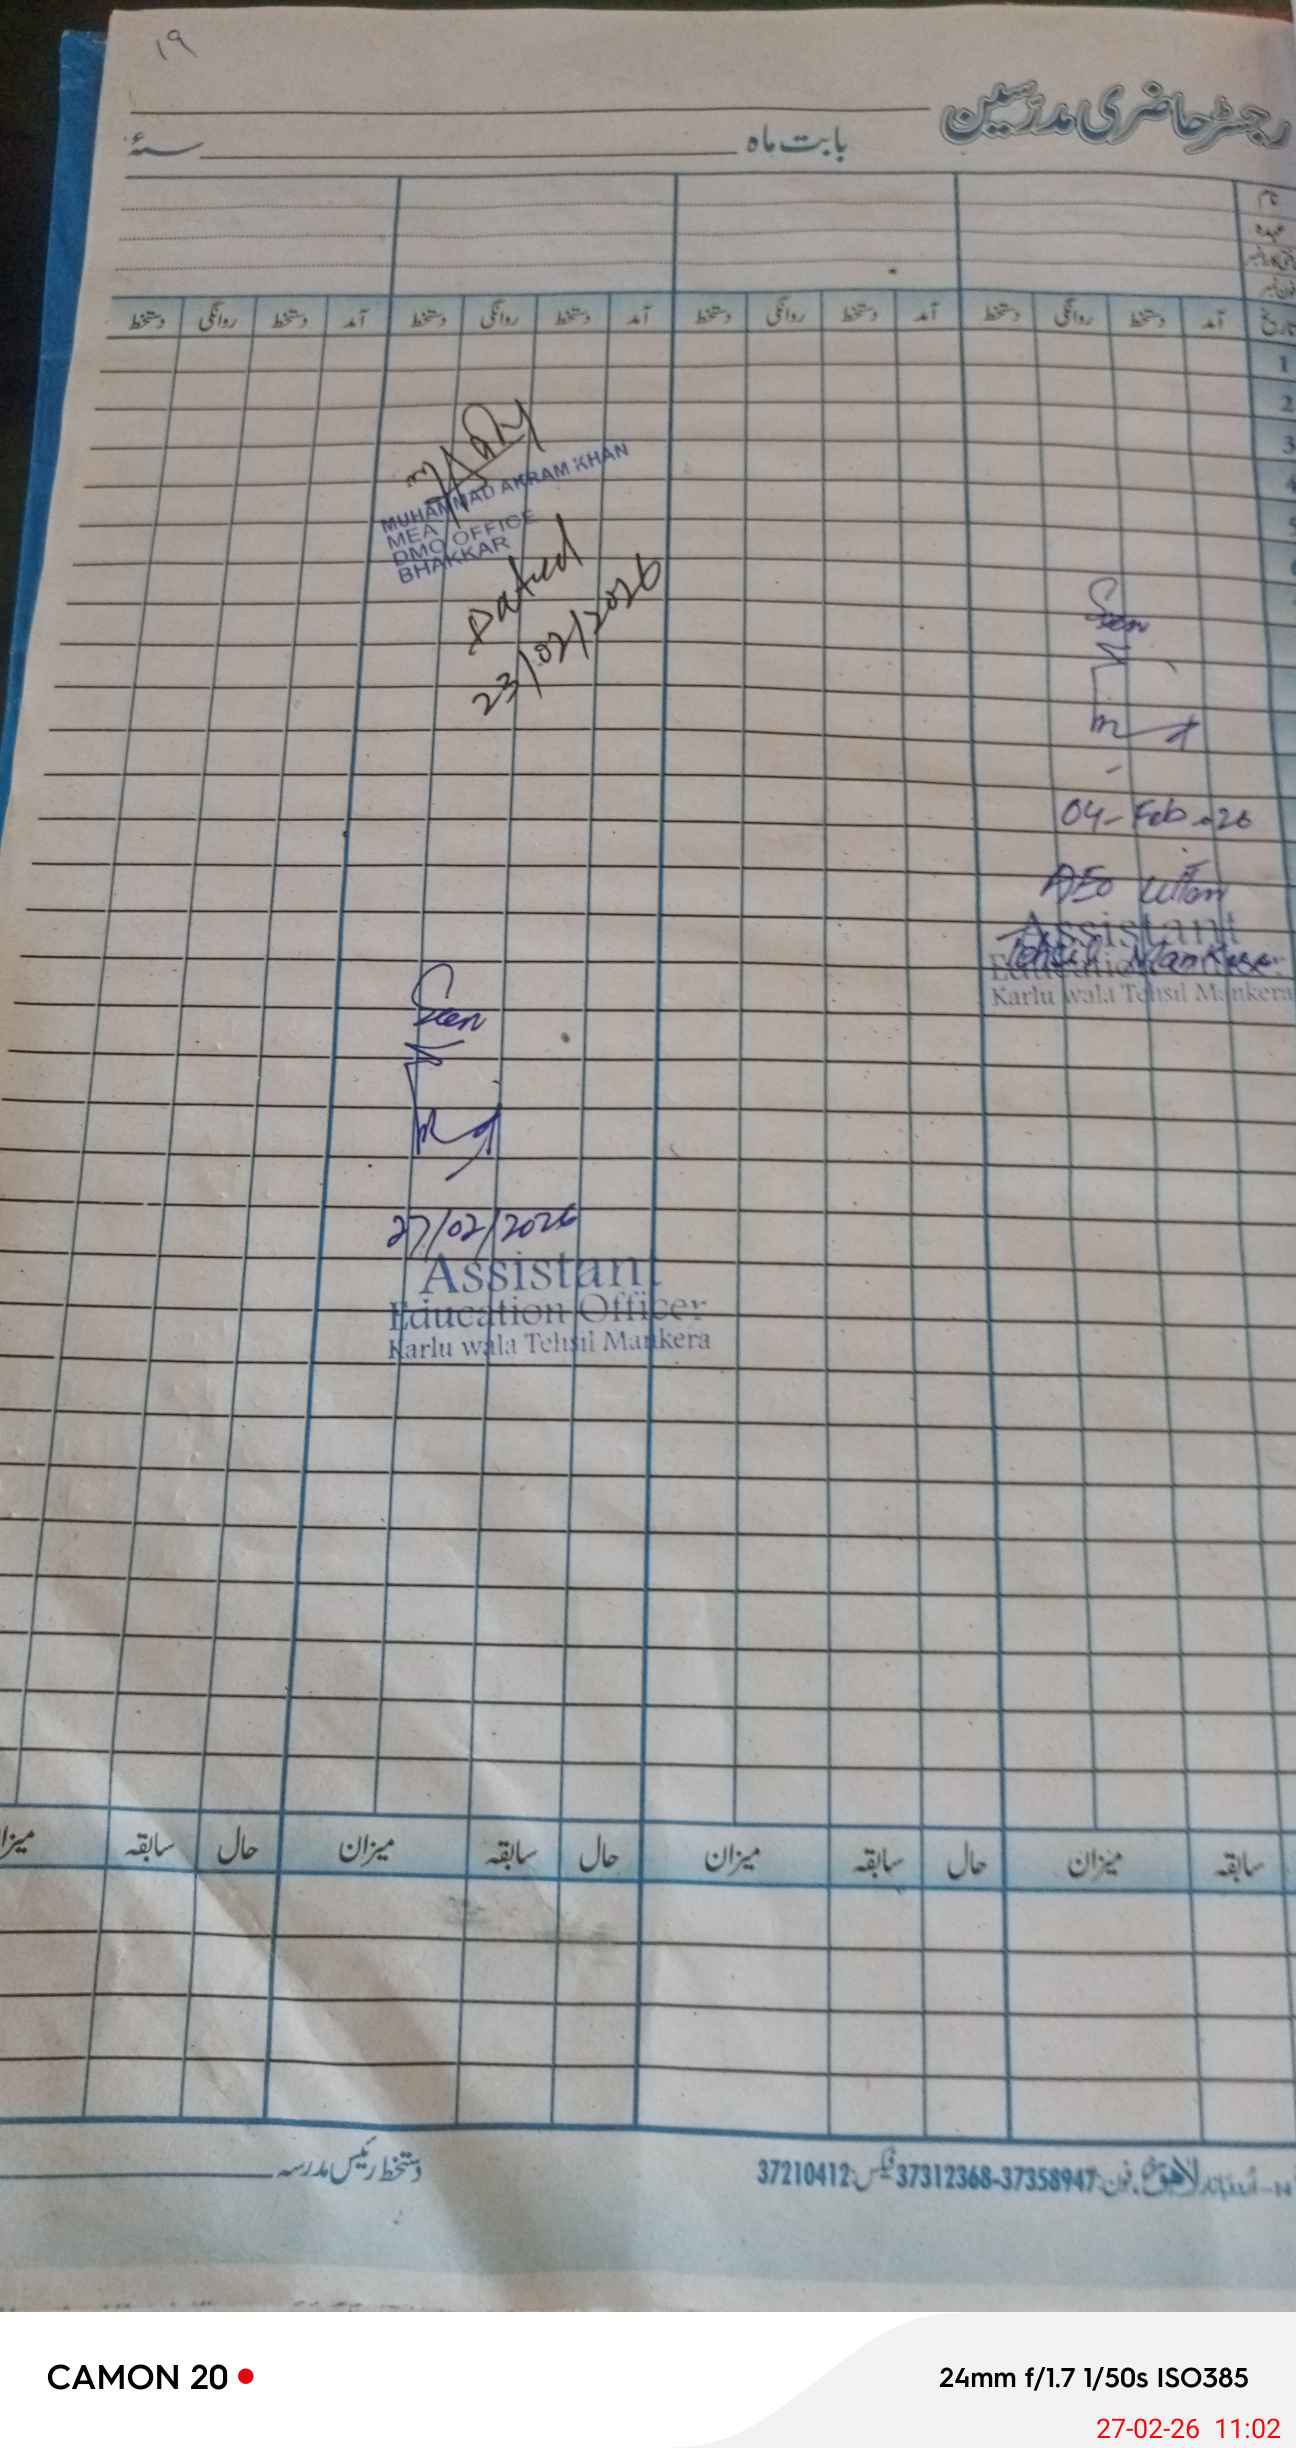 ۱۹
رجسٹر حاضری مدرسین
بابت ماہ سنہ
نام
عہدہ
تاریخ آمد دستخط روانگی دستخط آمد دستخط روانگی دستخط آمد دستخط روانگی دستخط آمد دستخط روانگی دستخط
1
2
3
4
5
MUHAMMAD AKRAM KHAN
MEA
DMO OFFICE
BHAKKAR
Dated
23/02/2026
Seen
04-Feb-26
AEO
Assistant
Tehsil Mankera
Education
Karlu wala Tehsil Mankera
Seen
27/02/2026
Assistant
Education Officer
Karlu wala Tehsil Mankera
سابقہ میزان حال سابقہ میزان حال سابقہ میزان حال سابقہ میزان
لاہور فون: 37358947-37312368 فیکس: 37210412
دستخط رئیس مدرسہ
CAMON 20
24mm f/1.7 1/50s ISO385
27-02-26 11:02